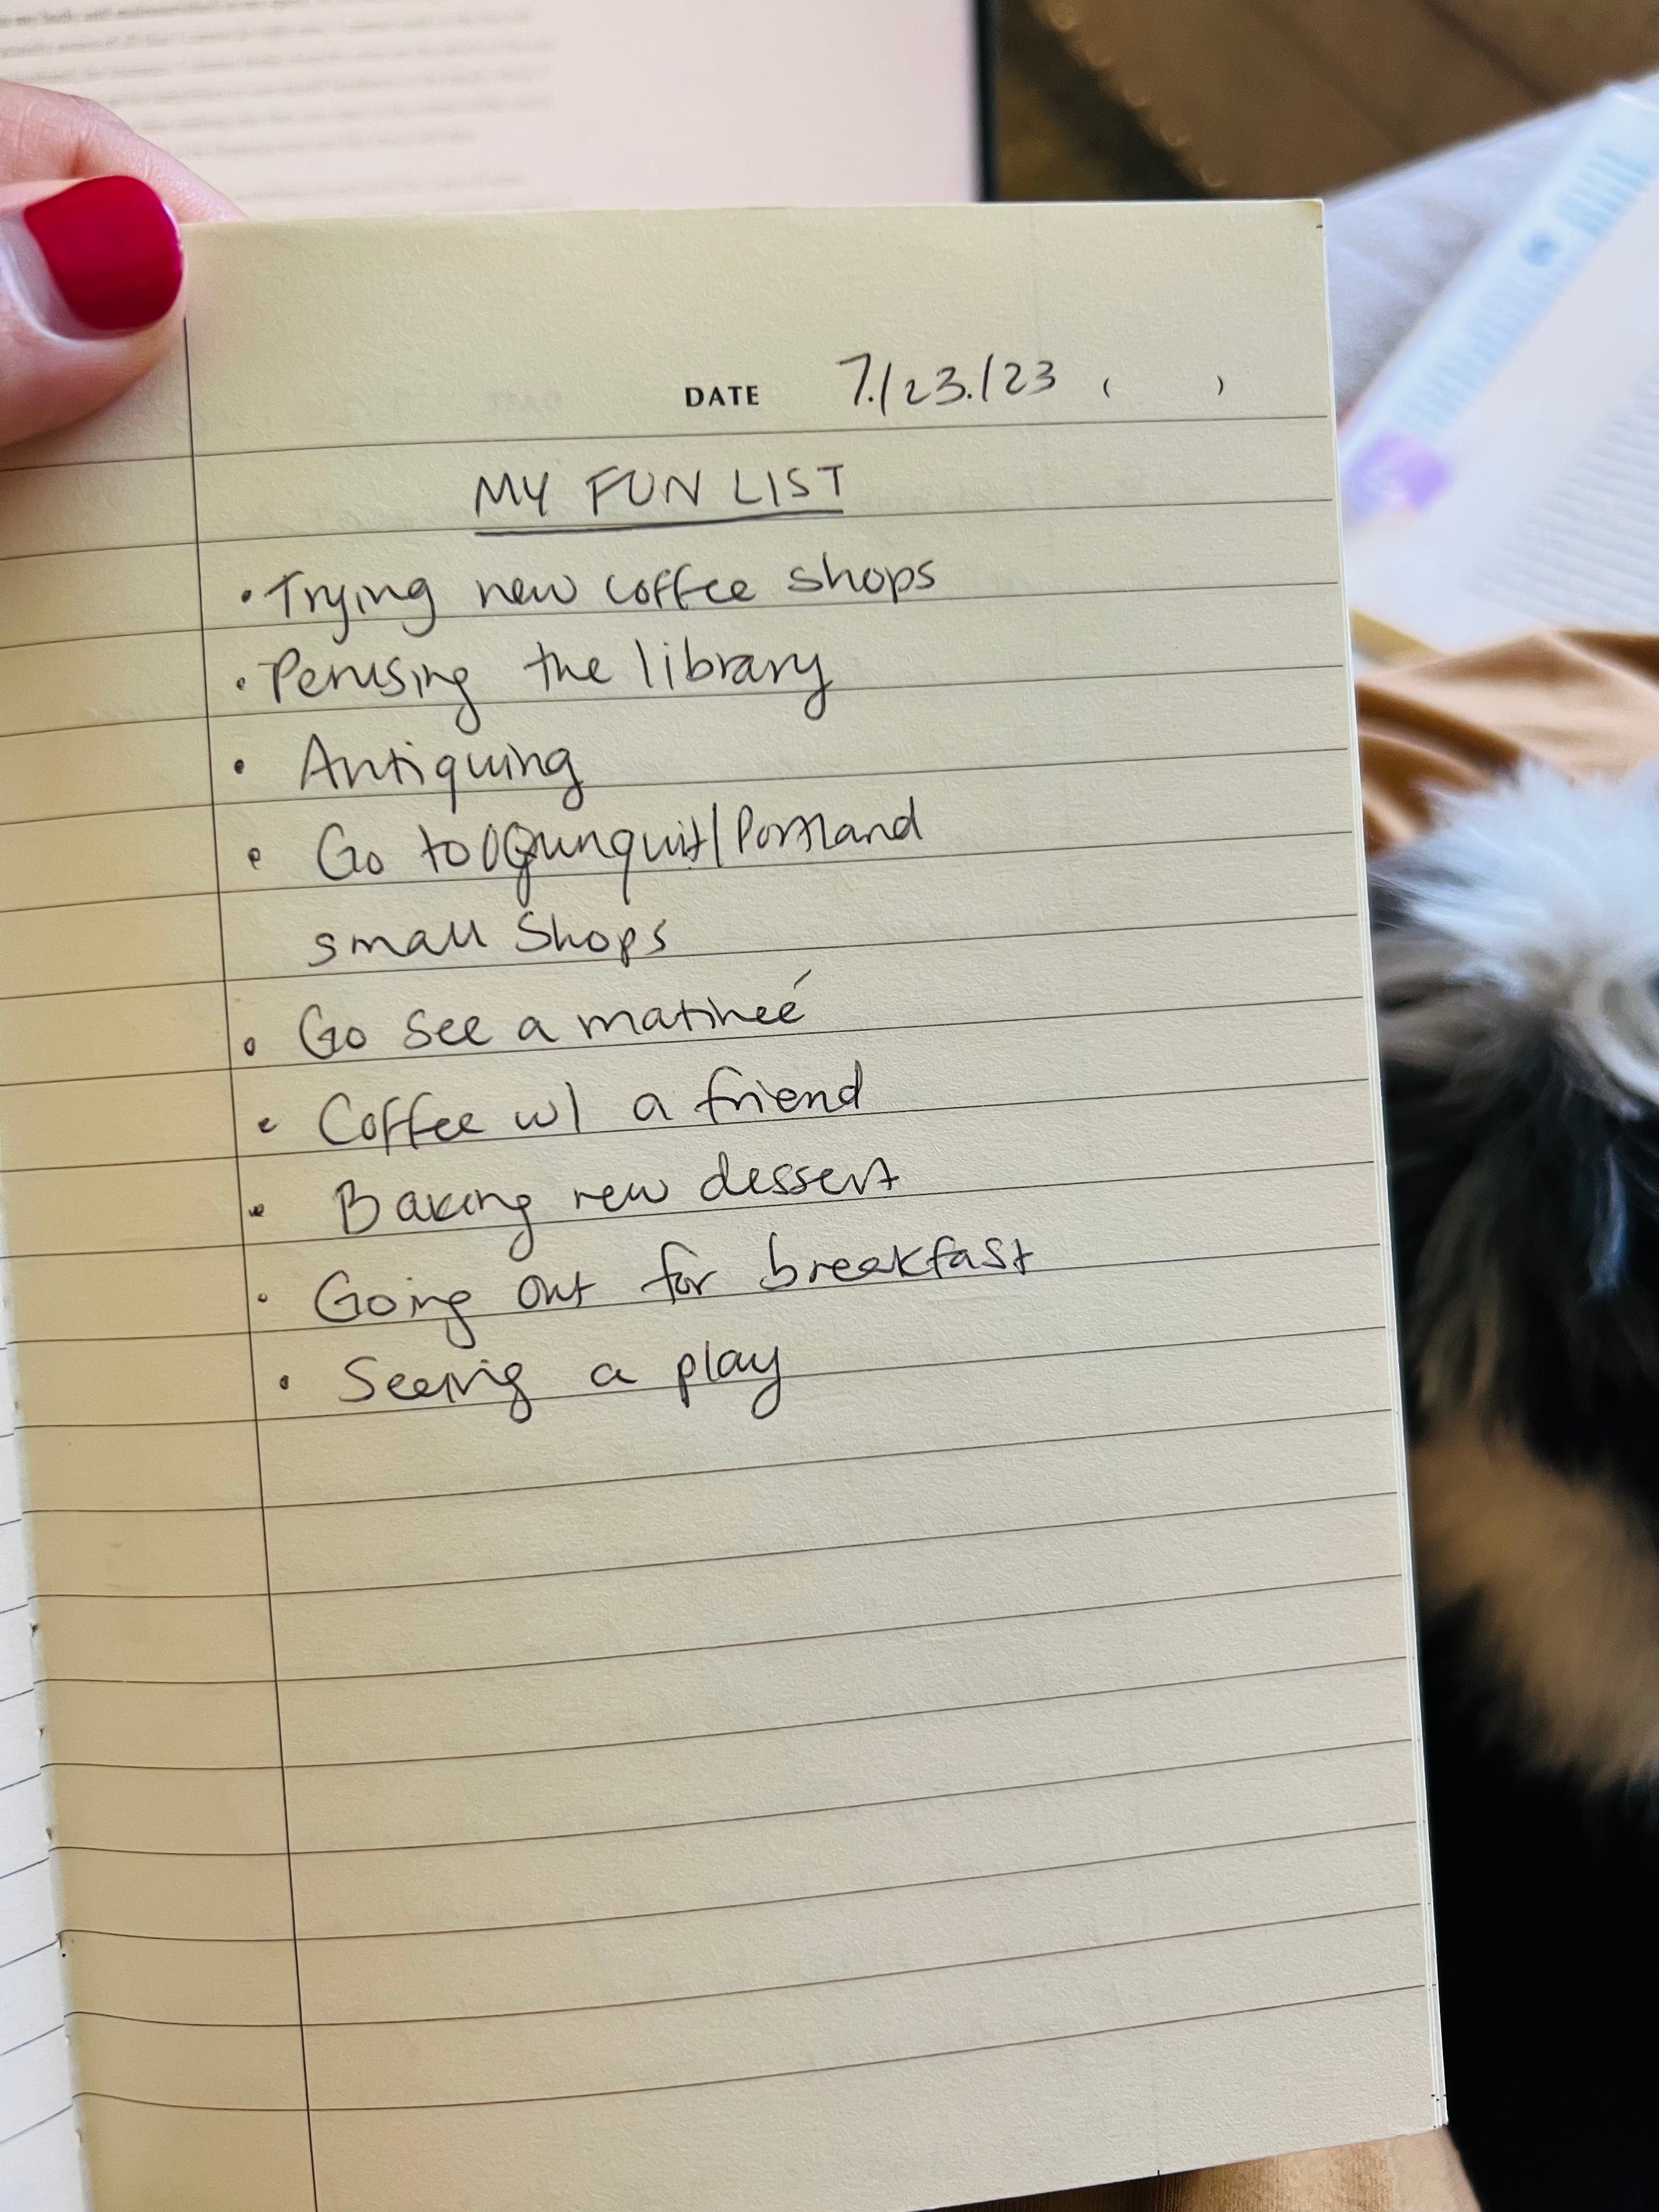 DATE 7./23./23 ( )
MY FUN LIST
• Trying new coffee shops
• Perusing the library
• Antiquing
• Go to Ogunquit/Portland
small Shops
• Go see a matineé
• Coffee w/ a friend
• Baking new dessert
• Going out for breakfast
• Seeing a play